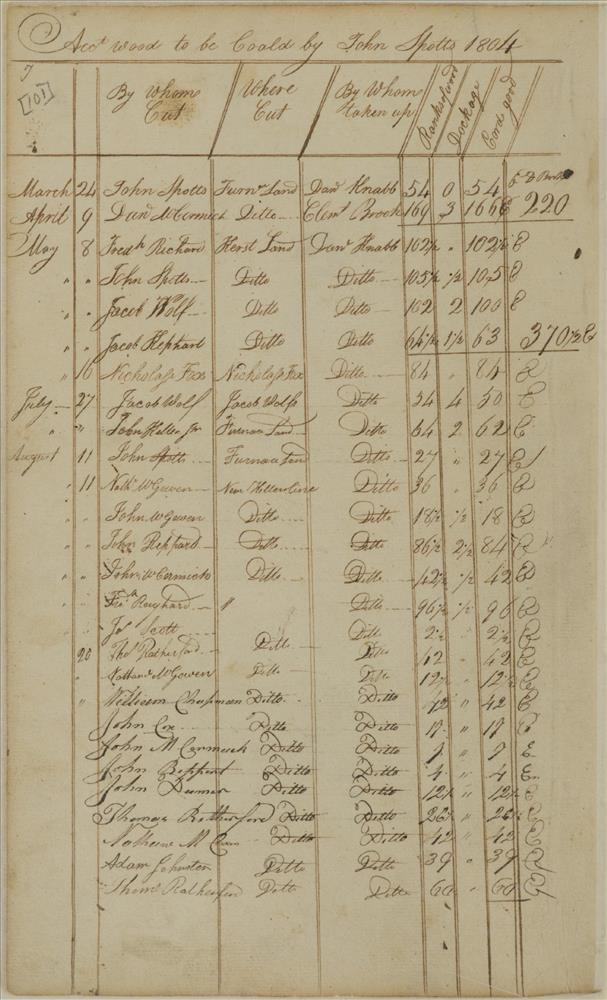 Acct wood to be Coald by John Spotts 1804
[101]
By Whome Cut Where Cut By Whom taken up Dockage Cord good
March 24 John Spotts Furnr Land Danl Knabb 54 0 54
April 9 Danl McCormick Ditto Clemt Brook 169 3 166 220
May 8 Fredk Richard Herst Land Danl Knabb 102½ " 102½
" " John Spotts Ditto Ditto 105½ ½ 105
" " Jacob Wolf Ditto Ditto 102 2 100
" " Jacob Hephart Ditto Ditto 64½ 1½ 63 370½
" 16 Nicholass Fox Nicholass Fox Ditto 84 " 84
July 27 Jacob Wolf Jacob Wolfs Ditto 54 4 50
" " John Jr Furnace Land Ditto 64 2 62
August 11 John Spotts Furnace Land Ditto 27 " 27
" 11 New Ditto 36 " 36
" " John McGowen Ditto Ditto 18½ ½ 18
" " John Heppard Ditto Ditto 86½ 2½ 84
" " John McCormick Ditto Ditto 42½ ½ 42
" " " Ditto 96½ ½ 96
Scott Ditto 2½ " 2½
20 Thos Ratherford Ditto Ditto 42 " 42
" McGowen Ditto Ditto 12½ " 12½
" William Chapman Ditto Ditto 42 " 42
John Cox Ditto Ditto 17 " 17
John McCormick Ditto Ditto 9 " 9
John Ditto Ditto 4 " 4
John Ditto Ditto 12½ " 12½
Thomas Rutherford Ditto Ditto 26½ " 26½
Ditto Ditto 42 " 42
Adam Johnston Ditto Ditto 39 " 39
Thoms Ratherford Ditto Ditto 60 " 60